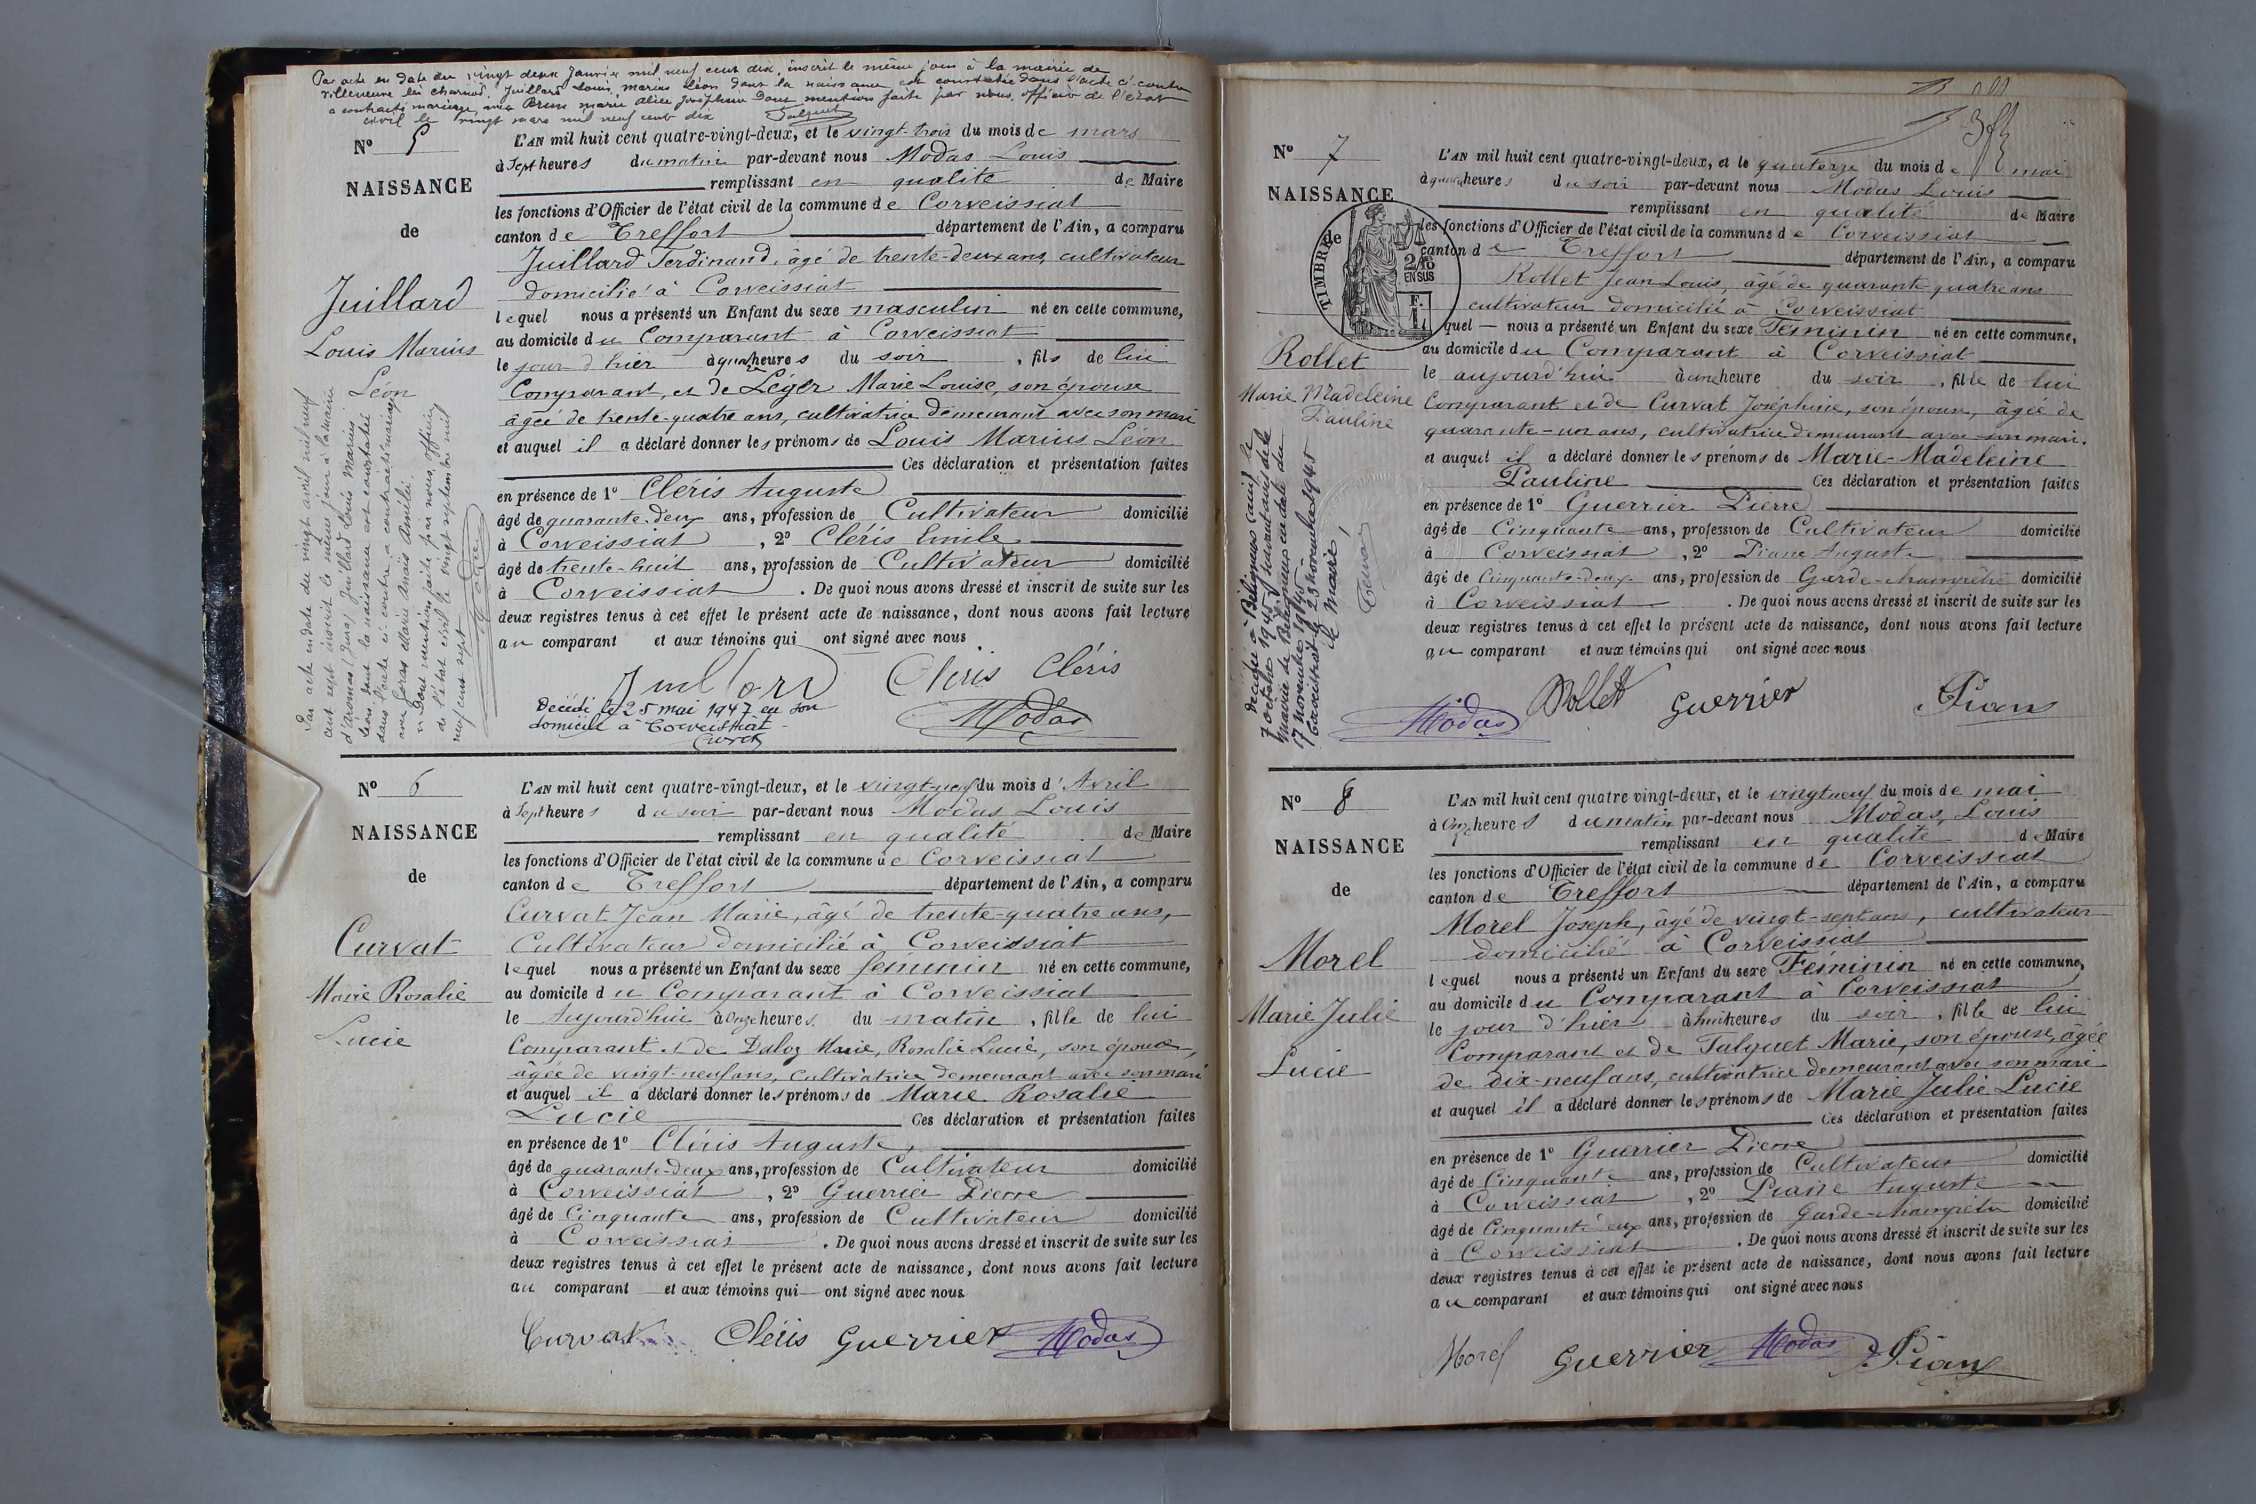 Par acte en date du vingt deux Janvier mil neuf cent dix, inscrit le même jour à la mairie de
Villeneuve lès Charnod, Juillard Louis, Marius Léon dont la naissance est constatée dans l'acte ci contre
a contracté mariage avec Brun Marie Alice Joséphine Dont mention faite par nous, officier de l'état
civil le vingt mars mil neuf cent dix
N° 5
NAISSANCE
de
Juillard
Louis Marius
Léon
Par acte en date du vingt avril mil neuf
cent sept inscrit le même jour à la mairie
d'Aromas (Jura) Juillard Louis Marius
Léon dont la naissance est constatée
dans l'acte ci contre a contracté mariage
avec Marie Anaïs Amélie
Dont mention faite par nous, officier
de l'état civil le vingt septembre mil
neuf cent sept
L'AN mil huit cent quatre-vingt-deux, et le vingt-trois du mois de mars
à Sept heures du matin par-devant nous Modas Louis
remplissant en qualité de Maire
les fonctions d'Officier de l'état civil de la commune de Corveissiat
canton de Treffort département de l'Ain, a comparu
Juillard Ferdinand, âgé de trente-deux ans, cultivateur
domicilié à Corveissiat
lequel nous a présenté un Enfant du sexe masculin né en cette commune,
au domicile du Comparant à Corveissiat
le jour d'hier à quatre heures du soir, fils de lui
Comparant, et de Léger Marie Louise, son épouse
âgée de trente-quatre ans, cultivatrice demeurant avec son mari
et auquel il a déclaré donner les prénoms de Louis Marius Léon
Ces déclaration et présentation faites
en présence de 1° Cléris Auguste
âgé de quarante-deux ans, profession de Cultivateur domicilié
à Corveissiat, 2° Cléris Emile
âgé de trente-huit ans, profession de Cultivateur domicilié
à Corveissiat. De quoi nous avons dressé et inscrit de suite sur les
deux registres tenus à cet effet le présent acte de naissance, dont nous avons fait lecture
au comparant et aux témoins qui ont signé avec nous
Juillard Cléris Cléris
Modas
Décédé le 25 mai 1947 en son
domicile à Corveissiat
N° 6
NAISSANCE
de
Curvat
Marie Rosalie
Lucie
L'AN mil huit cent quatre-vingt-deux, et le vingt-neuf du mois d'Avril
à Sept heures du soir par-devant nous Modas Louis
remplissant en qualité de Maire
les fonctions d'Officier de l'état civil de la commune de Corveissiat
canton de Treffort département de l'Ain, a comparu
Curvat Jean Marie, âgé de trente-quatre ans,
Cultivateur domicilié à Corveissiat
lequel nous a présenté un Enfant du sexe féminin né en cette commune,
au domicile du Comparant à Corveissiat
le Aujourd'hui à Onze heures du matin, fille de lui
Comparant et de Daloz Marie, Rosalie Lucie, son épouse,
âgée de vingt-neuf ans, Cultivatrice demeurant avec son mari
et auquel il a déclaré donner les prénoms de Marie Rosalie
Lucie Ces déclaration et présentation faites
en présence de 1° Cléris Auguste
âgé de quarante-deux ans, profession de Cultivateur domicilié
à Corveissiat, 2° Guerrier Pierre
âgé de Cinquante ans, profession de Cultivateur domicilié
à Corveissiat. De quoi nous avons dressé et inscrit de suite sur les
deux registres tenus à cet effet le présent acte de naissance, dont nous avons fait lecture
au comparant et aux témoins qui ont signé avec nous
Curvat Cléris Guerrier Modas
N° 7
NAISSANCE
de
TIMBRE
2/10
EN SUS
F.
1.
Rollet
Marie Madeleine
Pauline
décédée à Béligneux
7 octobre 1945 suivant avis de la
mairie de Béligneux en date du
17 novembre 1945
Corveissiat le 23 novembre 1945
le Maire,
L'AN mil huit cent quatre-vingt-deux, et le quatorze du mois de mai
à quatre heures du soir par-devant nous Modas Louis
remplissant en qualité de Maire
les fonctions d'Officier de l'état civil de la commune de Corveissiat
canton de Treffort département de l'Ain, a comparu
Rollet Jean Louis, âgé de quarante quatre ans
cultivateur domicilié à Corveissiat
quel nous a présenté un Enfant du sexe Féminin né en cette commune,
au domicile du Comparant à Corveissiat
le aujourd'hui à une heure du soir, fille de lui
Comparant et de Curvat Joséphine, son épouse, âgée de
quarante-un ans, cultivatrice demeurant avec son mari.
et auquel il a déclaré donner les prénoms de Marie-Madeleine
Pauline Ces déclaration et présentation faites
en présence de 1° Guerrier Pierre
âgé de Cinquante ans, profession de Cultivateur domicilié
à Corveissiat, 2° Piane Auguste
âgé de Cinquante-deux ans, profession de Garde-champêtre domicilié
à Corveissiat. De quoi nous avons dressé et inscrit de suite sur les
deux registres tenus à cet effet le présent acte de naissance, dont nous avons fait lecture
au comparant et aux témoins qui ont signé avec nous
Modas Rollet Guerrier Pian
N° 8
NAISSANCE
de
Morel
Marie Julie
Lucie
L'AN mil huit cent quatre vingt-deux, et le vingt neuf du mois de mai
à Onze heures du matin par-devant nous Modas, Louis
remplissant en qualité de Maire
les fonctions d'Officier de l'état civil de la commune de Corveissiat
canton de Treffort département de l'Ain, a comparu
Morel Joseph, âgé de vingt-sept ans, cultivateur
domicilié à Corveissiat
lequel nous a présenté un Enfant du sexe Féminin né en cette commune,
au domicile du Comparant à Corveissiat
le jour d'hier à huit heures du soir, fille de lui
Comparant et de Talquet Marie, son épouse, âgée
de dix-neuf ans, cultivatrice demeurant avec son mari
et auquel il a déclaré donner les prénoms de Marie Julie Lucie
Ces déclaration et présentation faites
en présence de 1° Guerrier Pierre
âgé de Cinquante ans, profession de Cultivateur domicilié
à Corveissiat, 2° Piane Auguste
âgé de Cinquante deux ans, profession de Garde-champêtre domicilié
à Corveissiat. De quoi nous avons dressé et inscrit de suite sur les
deux registres tenus à cet effet le présent acte de naissance, dont nous avons fait lecture
au comparant et aux témoins qui ont signé avec nous
Morel Guerrier Modas Pian